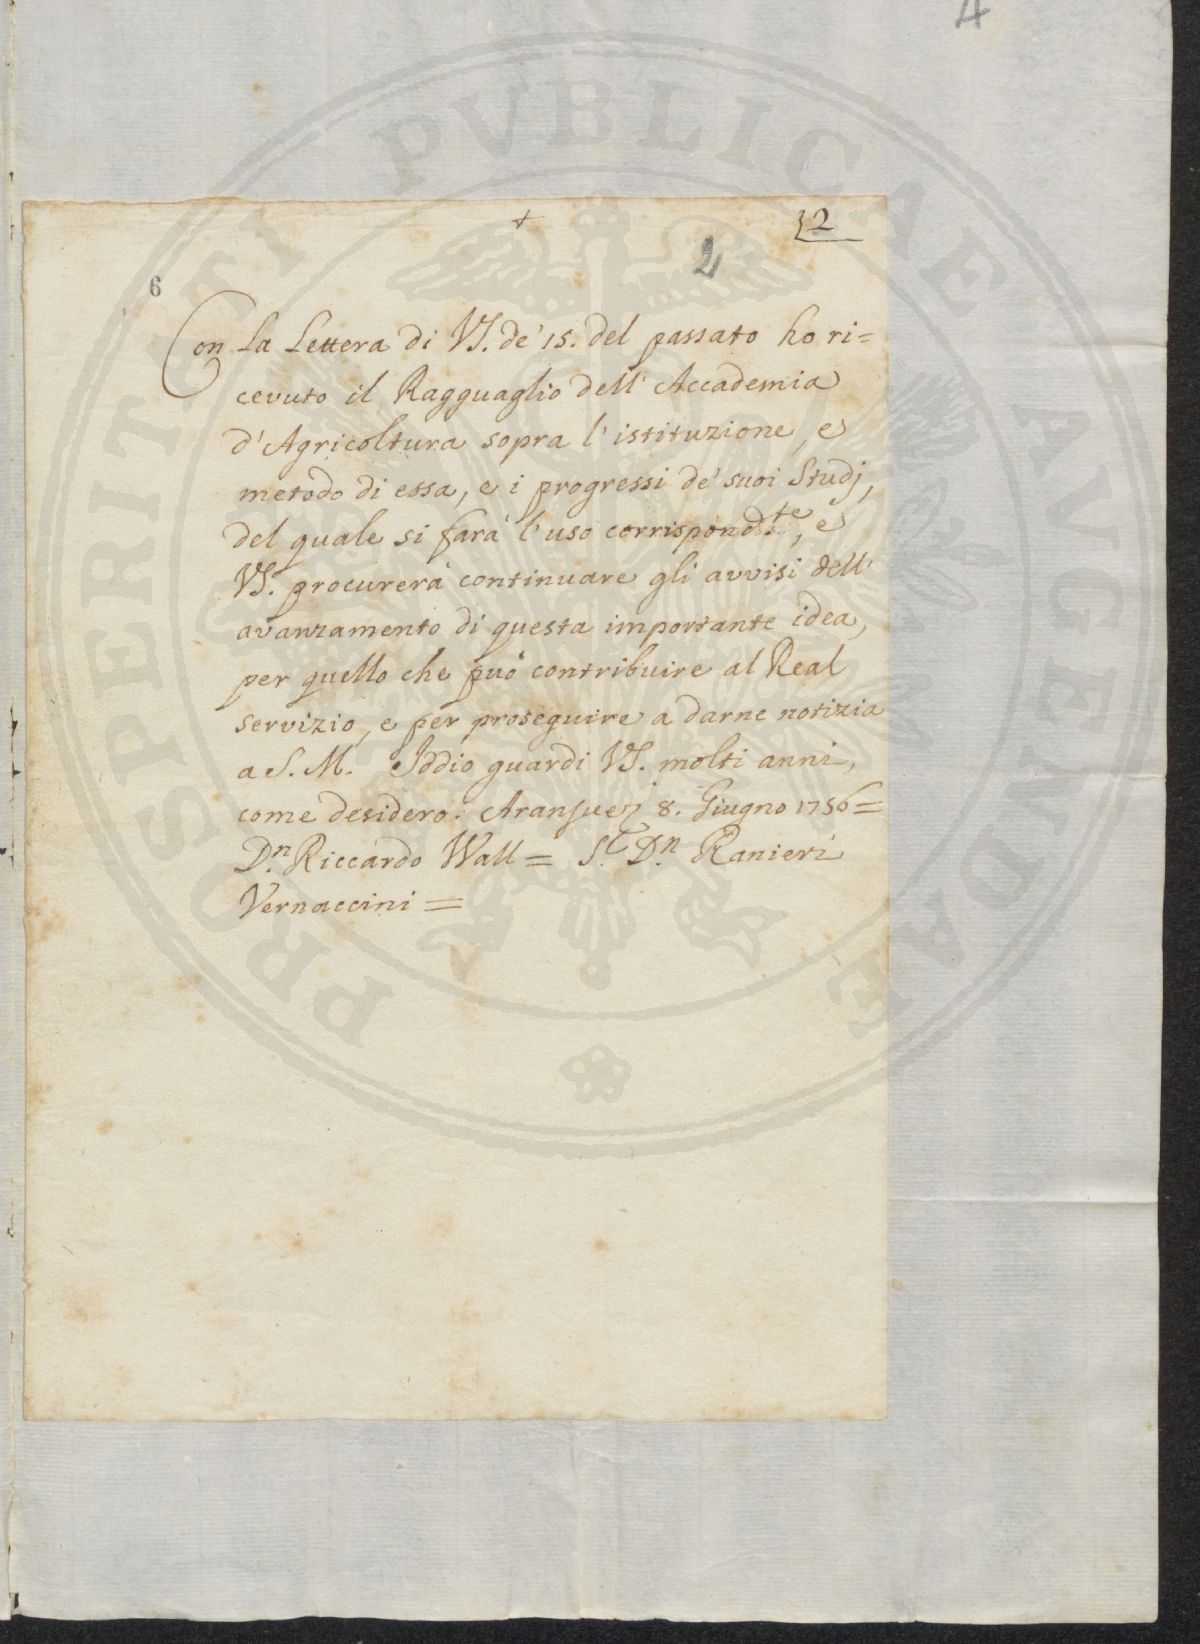 4
+
12
2
6
Con la Lettera di VS. de' 15. del passato ho ri=
cevuto il Ragguaglio dell' Accademia
d' Agricoltura sopra l' istituzione, e
metodo di essa, e i progressi de' suoi Studj,
del quale si farà l' uso corrispondte, e
VS. procurerà continuare gli avvisi dell'
avanzamento di questa importante idea,
per quello che può contribuire al Real
servizio, e per proseguire a darne notizia
a S. M. Iddio guardi VS. molti anni,
come desidero. Aransuez 8. Giugno 1756=
D.n Riccardo Wall = S.r D.n Ranieri
Vernaccini =
PROSPERITATI PVBLICAE AVGENDAE